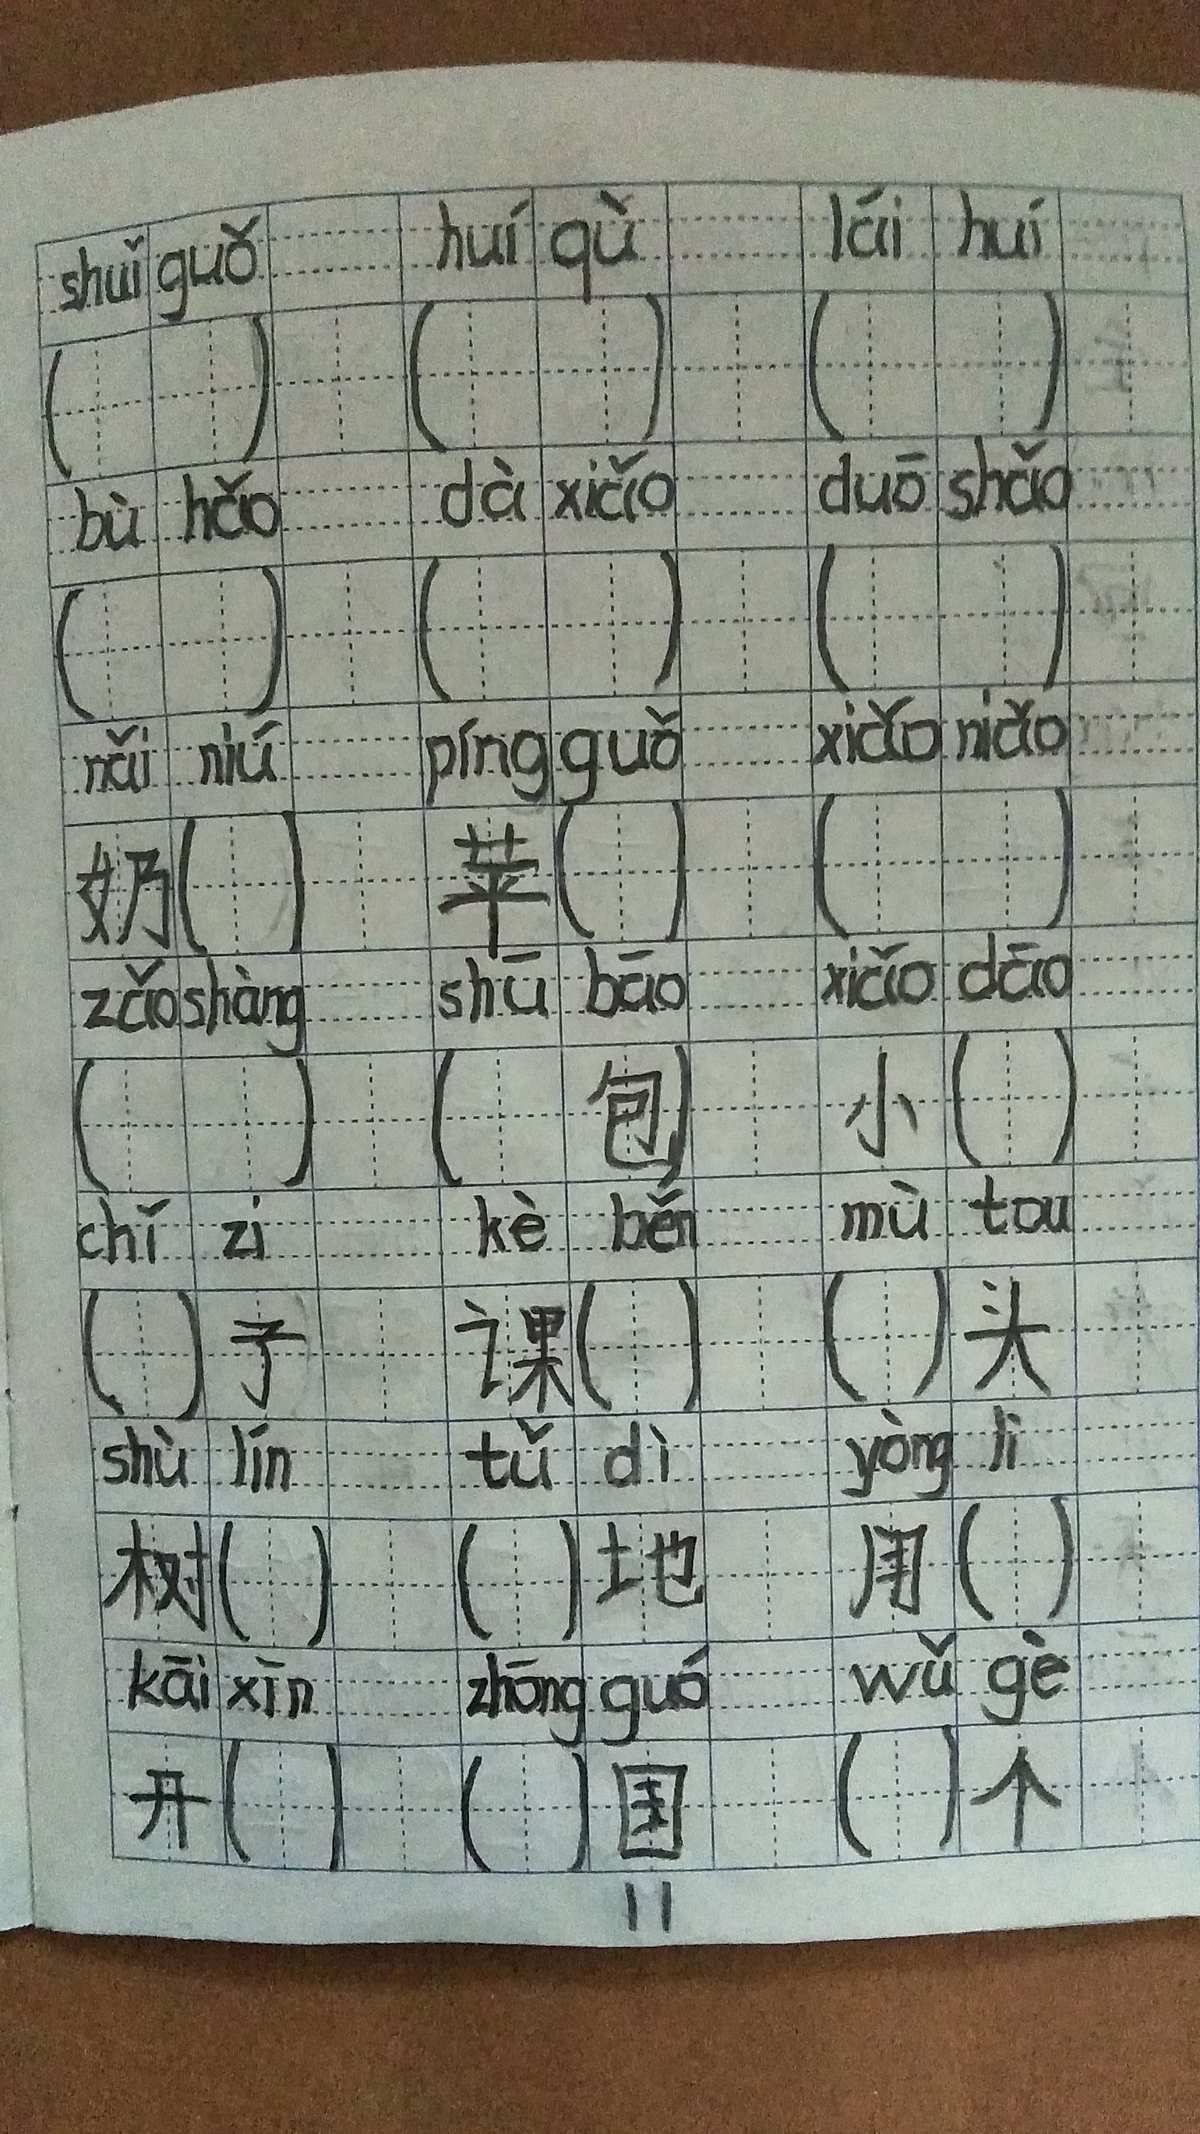 shuǐ guǒ huí qù lái huí
( ) ( ) ( )
bù hǎo dà xiǎo duō shǎo
( ) ( ) ( )
nǎi niú píng guǒ xiǎo niǎo
奶( ) 苹( ) ( )
zǎo shàng shū bāo xiǎo dāo
( ) ( 包) 小( )
chǐ zi kè běn mù tou
( )子 课( ) ( )头
shù lín tǔ dì yòng lì
树( ) ( )地 用( )
kāi xīn zhōng guó wǔ gè
开( ) ( )国 ( )个
11